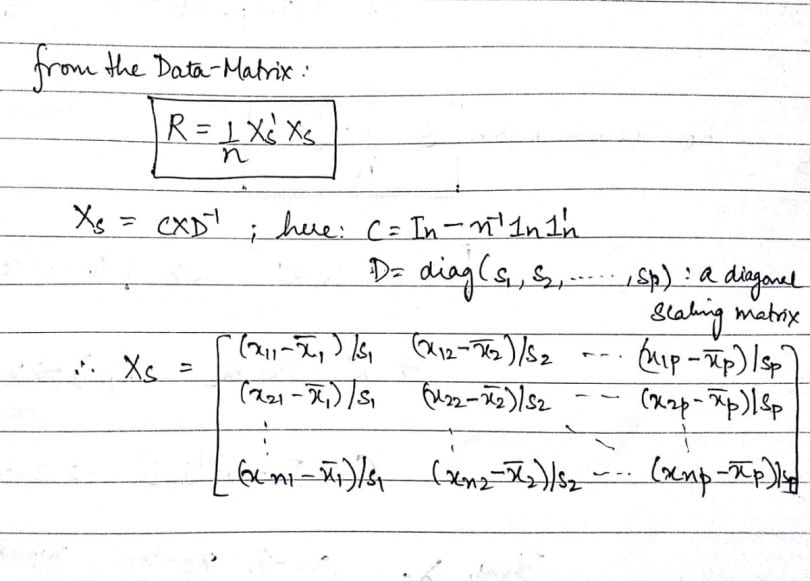 from the Data-Matrix :
R = 1/n Xs' Xs
Xs = CXD⁻¹ ; here: C = In − n⁻¹ 1n 1n'
D = diag(s₁, s₂, ......, sp) : a diagonal
scaling matrix
∴ Xs = [ (x₁₁ − x̄₁)/s₁ (x₁₂ − x̄₂)/s₂ --- (x₁p − x̄p)/sp
(x₂₁ − x̄₁)/s₁ (x₂₂ − x̄₂)/s₂ -- (x₂p − x̄p)/sp
⋮ ⋮ ⋱ ⋮
(xn₁ − x̄₁)/s₁ (xn₂ − x̄₂)/s₂ ---- (xnp − x̄p)/sp ]